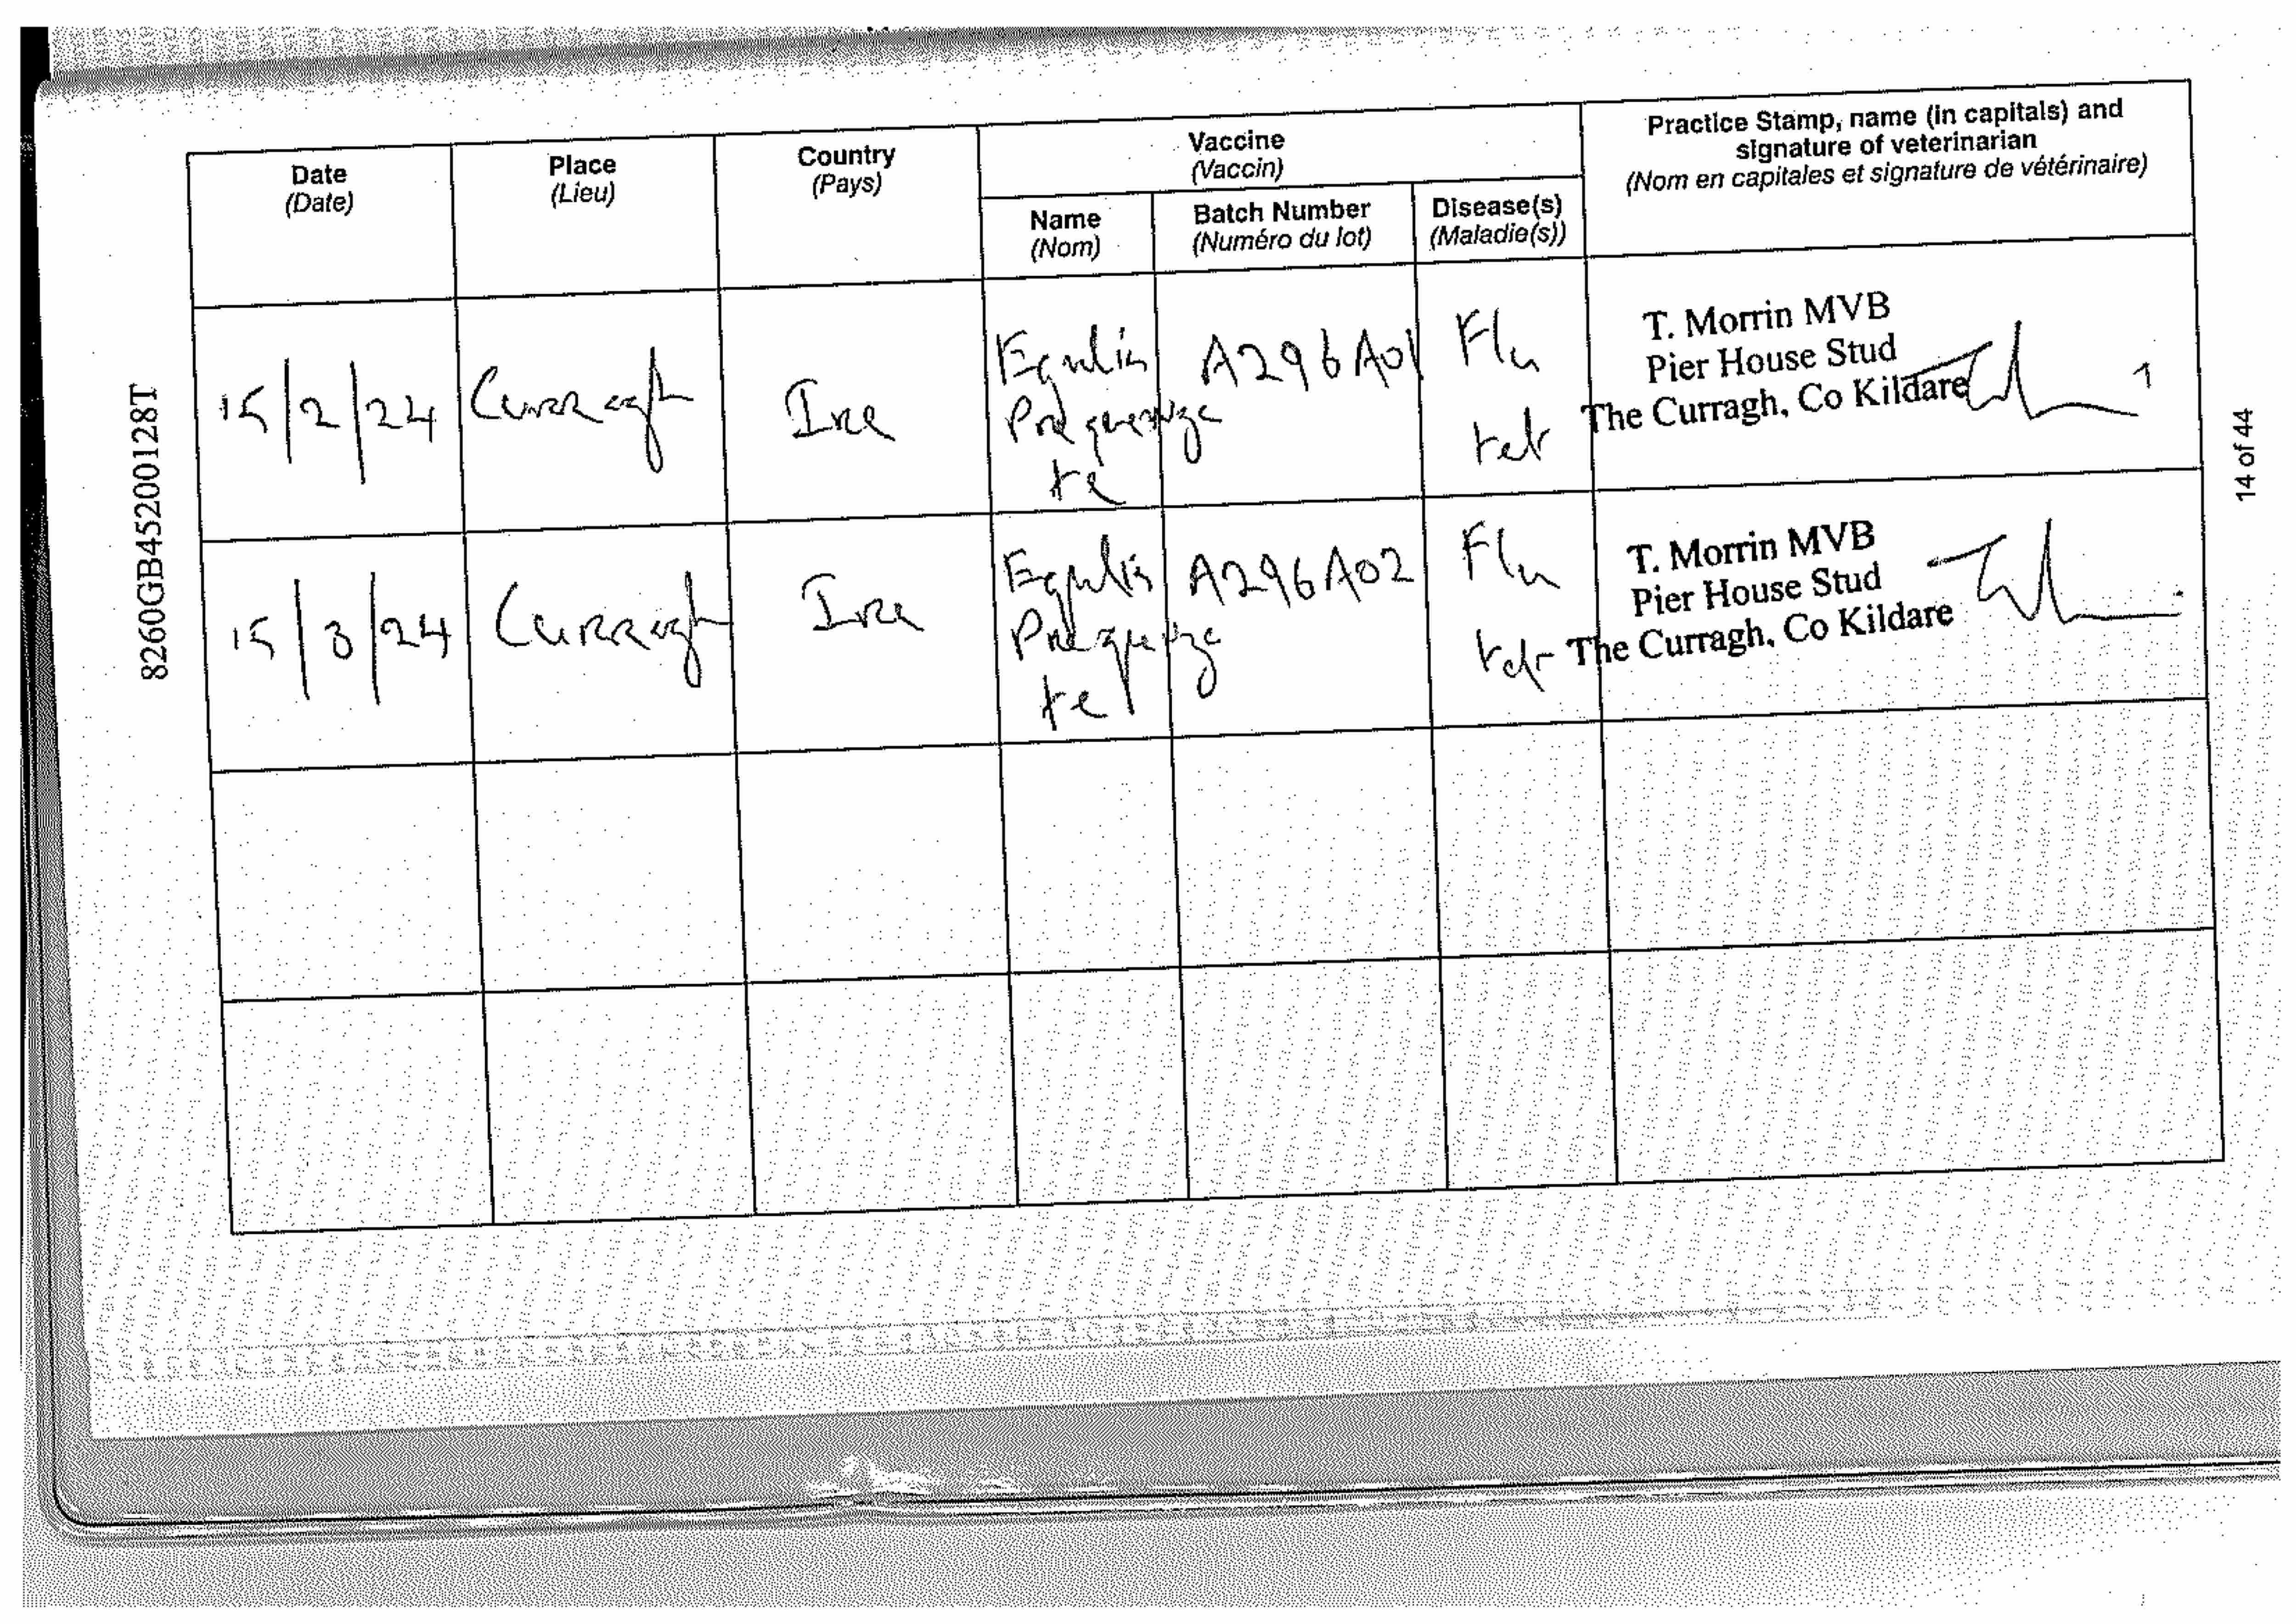 Date
(Date)
Place
(Lieu)
Country
(Pays)
Vaccine
(Vaccin)
Name
(Nom)
Batch Number
(Numéro du lot)
Disease(s)
(Maladie(s))
Practice Stamp, name (in capitals) and
signature of veterinarian
(Nom en capitales et signature de vétérinaire)
15/2/24
Curragh
Ire
Equlis
Prequenza
te
A296A01
Flu
tet
T. Morrin MVB
Pier House Stud
The Curragh, Co Kildare
15/3/24
Curragh
Ire
Equlis
Prequenza
te
A296A02
Flu
tet
T. Morrin MVB
Pier House Stud
The Curragh, Co Kildare
8260GB45200128T
14 of 44